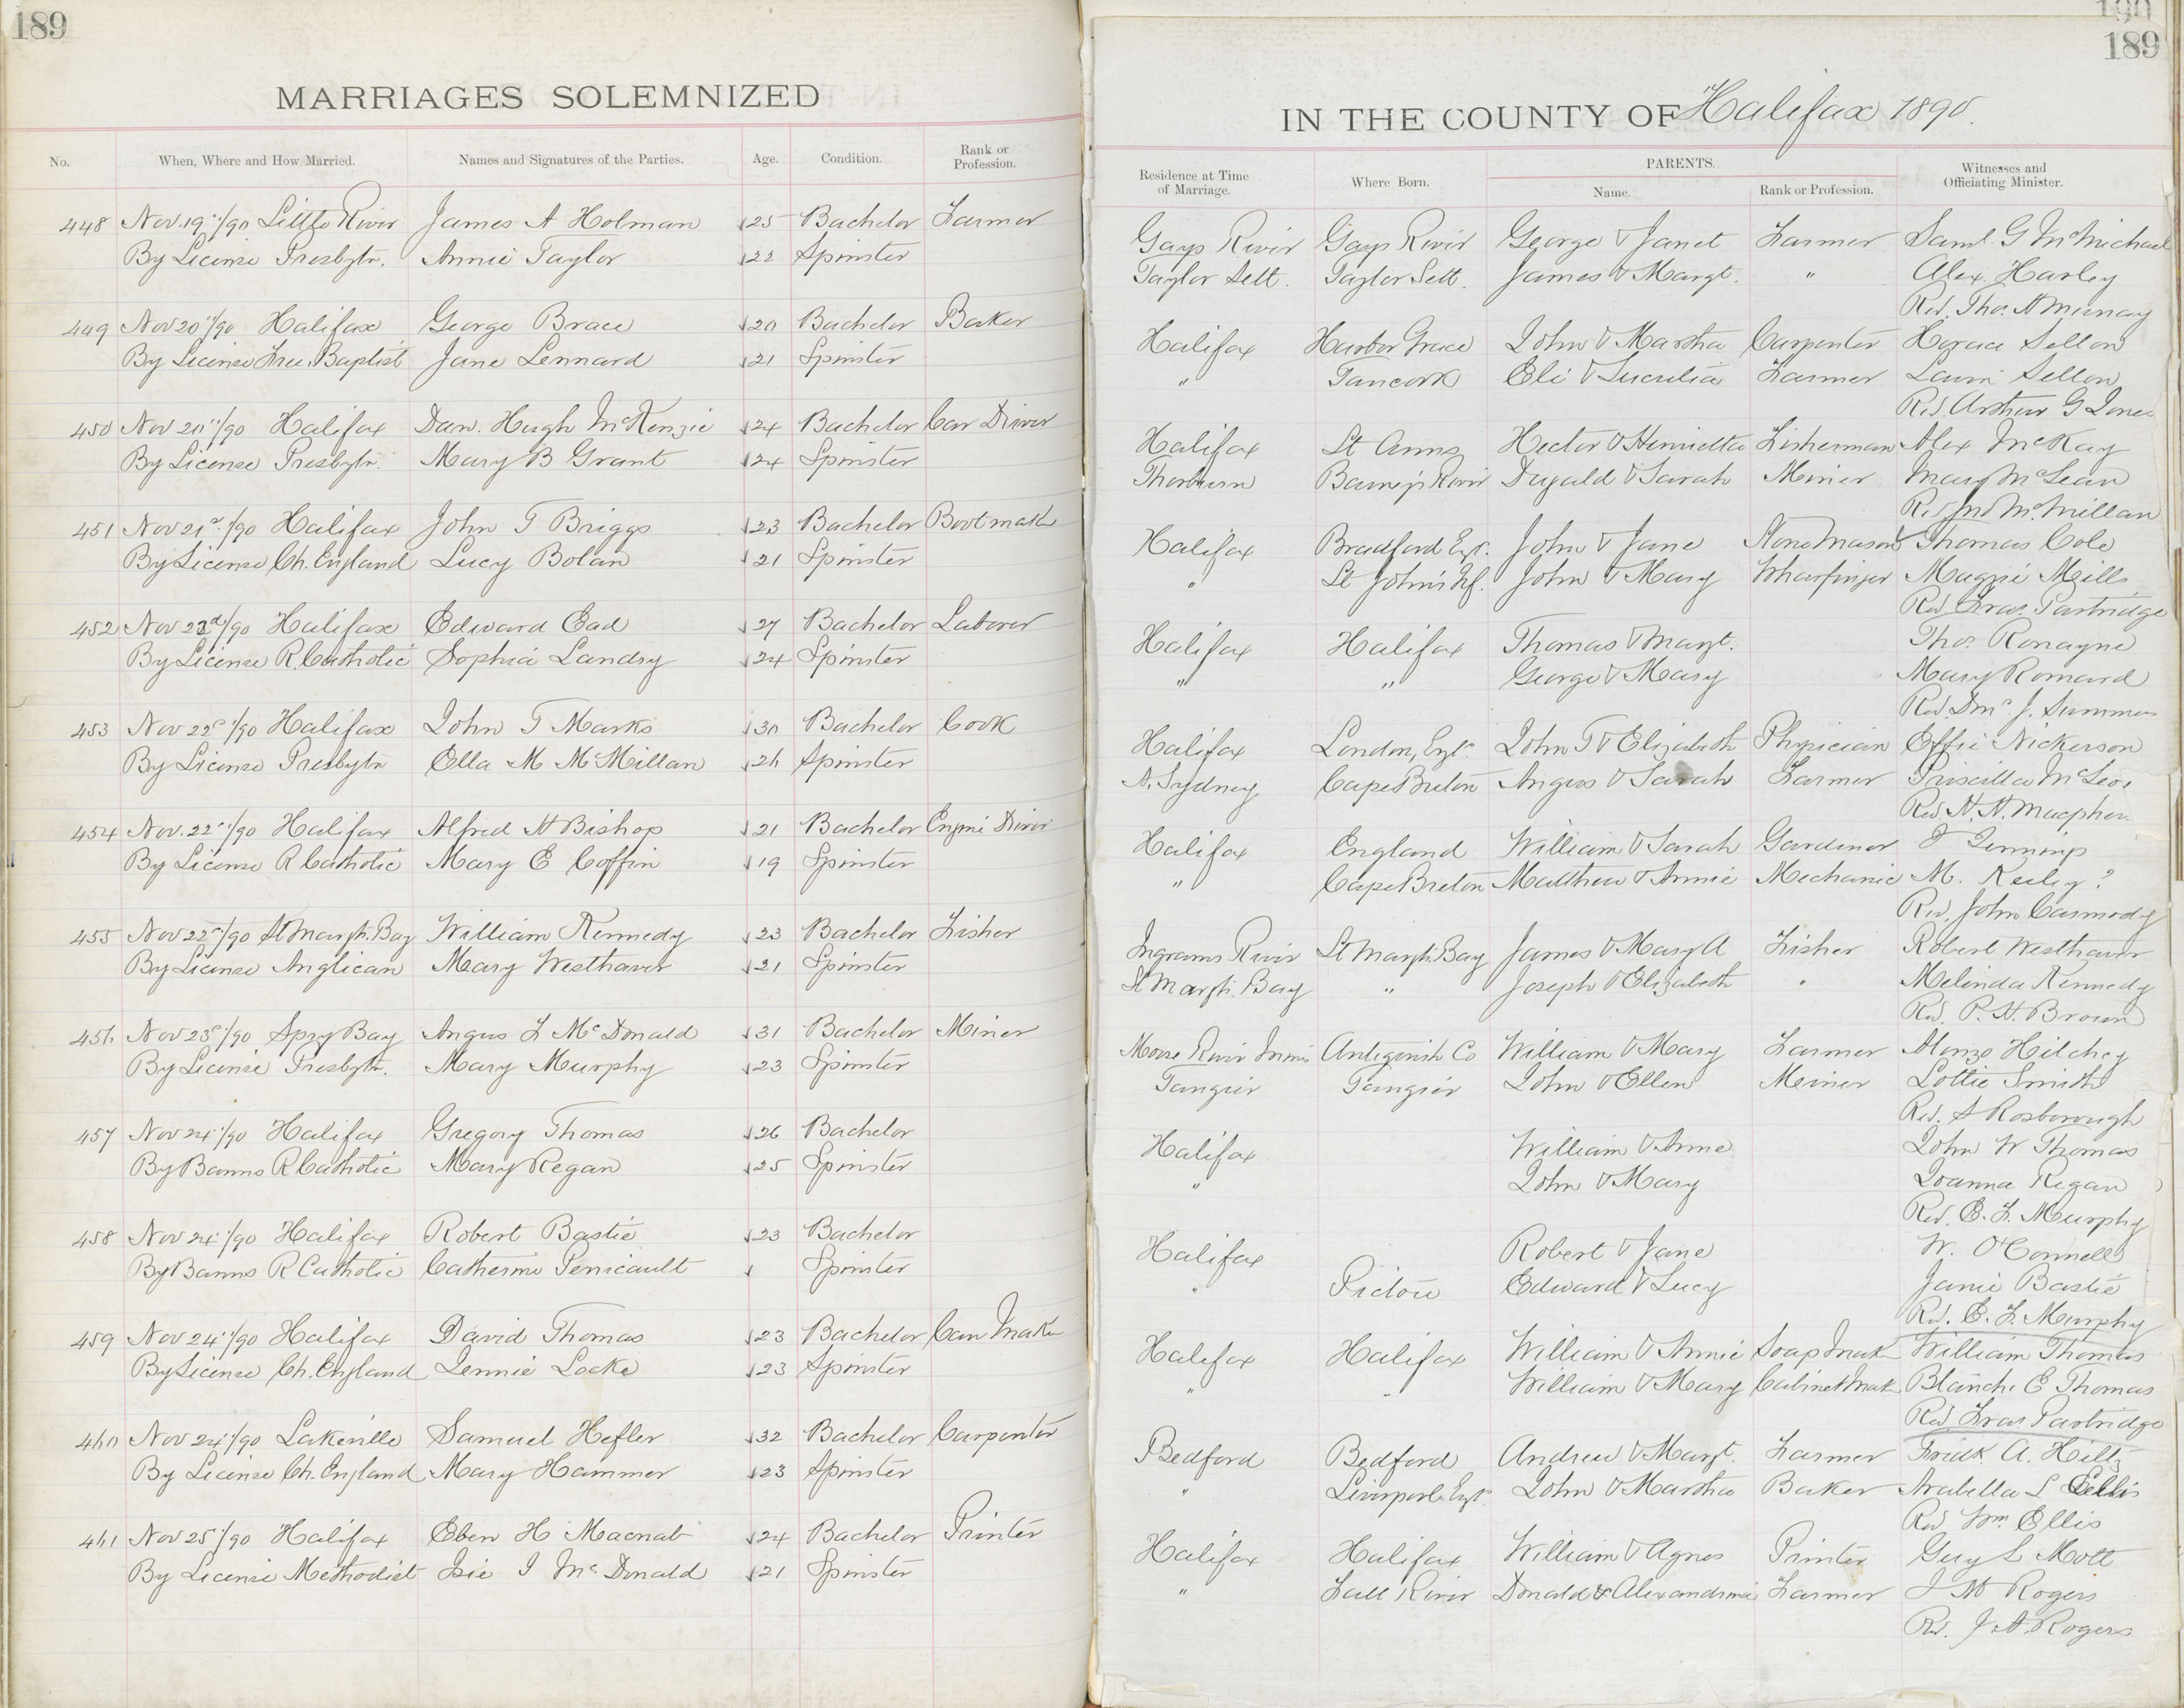 189
MARRIAGES SOLEMNIZED
No. When, Where and How Married. Names and Signatures of the Parties. Age. Condition. Rank or Profession.
448 Nov. 19"/90 Little River James A Holman 25 Bachelor Farmer
By License Presbytn. Annie Taylor 22 Spinster
449 Nov 20"/90 Halifax George Brace 20 Bachelor Baker
By License Free Baptist Jane Lennard 21 Spinster
450 Nov 20"/90 Halifax Dan. Hugh McKenzie 24 Bachelor Car Driver
By License Presbytn. Mary B Grant 24 Spinster
451 Nov 21st/90 Halifax John T Briggs 23 Bachelor Bootmak
By License Ch. England Lucy Bolan 21 Spinster
452 Nov 22d/90 Halifax Edward Ead 27 Bachelor Laborer
By License R. Catholic Sophia Landry 24 Spinster
453 Nov 22d/90 Halifax John T Marks 30 Bachelor Cook
By License Presbytn Ella M McMillan 26 Spinster
454 Nov. 22d/90 Halifax Alfred H Bishop 21 Bachelor Engine Driver
By License R Catholic Mary E Coffin 19 Spinster
455 Nov 22d/90 St Margts. Bay William Kennedy 23 Bachelor Fisher
By License Anglican Mary Westhaver 21 Spinster
456 Nov 23d/90 Spry Bay Angus F McDonald 31 Bachelor Miner
By License Presbytn. Mary Murphy 23 Spinster
457 Nov 24"/90 Halifax Gregory Thomas 26 Bachelor
By Banns R Catholic Mary Regan 25 Spinster
458 Nov 24"/90 Halifax Robert Bastie 23 Bachelor
By Banns R Catholic Catherine Penicault Spinster
459 Nov 24"/90 Halifax David Thomas 23 Bachelor Can Maker
By License Ch. England Lennie Locke 23 Spinster
460 Nov 24"/90 Lakeville Samuel Hefler 32 Bachelor Carpenter
By License Ch. England Mary Hammer 23 Spinster
461 Nov 25"/90 Halifax Eben H Macnab 24 Bachelor Printer
By License Methodist Isie I McDonald 21 Spinster
190
189
IN THE COUNTY OF Halifax 1890.
Residence at Time of Marriage. Where Born. PARENTS. Name. Rank or Profession. Witnesses and Officiating Minister.
Gays River Gays River George & Janet Farmer Saml. G McMichael
Taylor Sett. Taylor Sett. James & Margt. " Alex. Harley
Rev. Thos. H Murray
Halifax Harbor Grace John & Martha Carpenter Horace Sellon
" Tancook Eli & Lucretia Farmer Sellon
Rev. Arthur G Jones
Halifax St Anns Hector & Henrietta Fisherman Alex McKay
Thorburn Barney's River Dugald & Sarah Miner Mary McLean
Rev Jno McMillan
Halifax Bradford Engd. John & Jane Stone Mason Thomas Cole
" St John's Nf. John & Mary Wharfinger Maggie Mills
Rev. Fras. Partridge
Halifax Halifax Thomas & Margt. Thos. Ronayne
" " George & Mary Mary Romard
Rev. J. Summers
Halifax London, Engd. John T & Elizabeth Physician Effie Nickerson
N. Sydney Cape Breton Angus & Sarah Farmer Priscilla McLeo
Rev. H. H. Macpher
Halifax England William & Sarah Gardener J Jennings
" Cape Breton Matthew & Annie Mechanic M. Keeley?
Rev. John Carmody
Ingrams River St Margts. Bay James & Mary A Fisher Robert Westhaver
St Margts. Bay " Joseph & Elizabeth " Melinda Kennedy
Rev. P. H. Brown
Moose River Mines Antigonish Co William & Mary Farmer Alonzo Hilchey
Tangier Tangier John & Ellen Miner Lottie Smith
Rev. A Rosborough
Halifax William & Anne John W Thomas
" John & Mary Joanna Regan
Rev. E. F. Murphy
Halifax Robert & Jane W. O'Connell
" Pictou Edward & Lucy Janie Bastie
Rev. E. F. Murphy
Halifax Halifax William & Annie Soap Mak William Thomas
" " William & Mary Cabinet Mak Blanche E Thomas
Rev. Fras Partridge
Bedford Bedford Andrew & Margt. Farmer Fredk. A. Hiltz
" Liverpool Engd. John & Martha Baker Arabella L Ellis
Rev Wm. Ellis
Halifax Halifax William & Agnes Printer Guy L Mott
" Fall River Donald & Alexandrina Farmer J W Rogers
Rev. J. A. Rogers